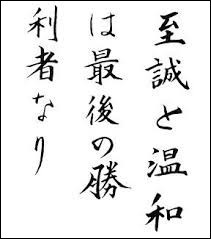 至誠と温和
は最後の勝
利者なり